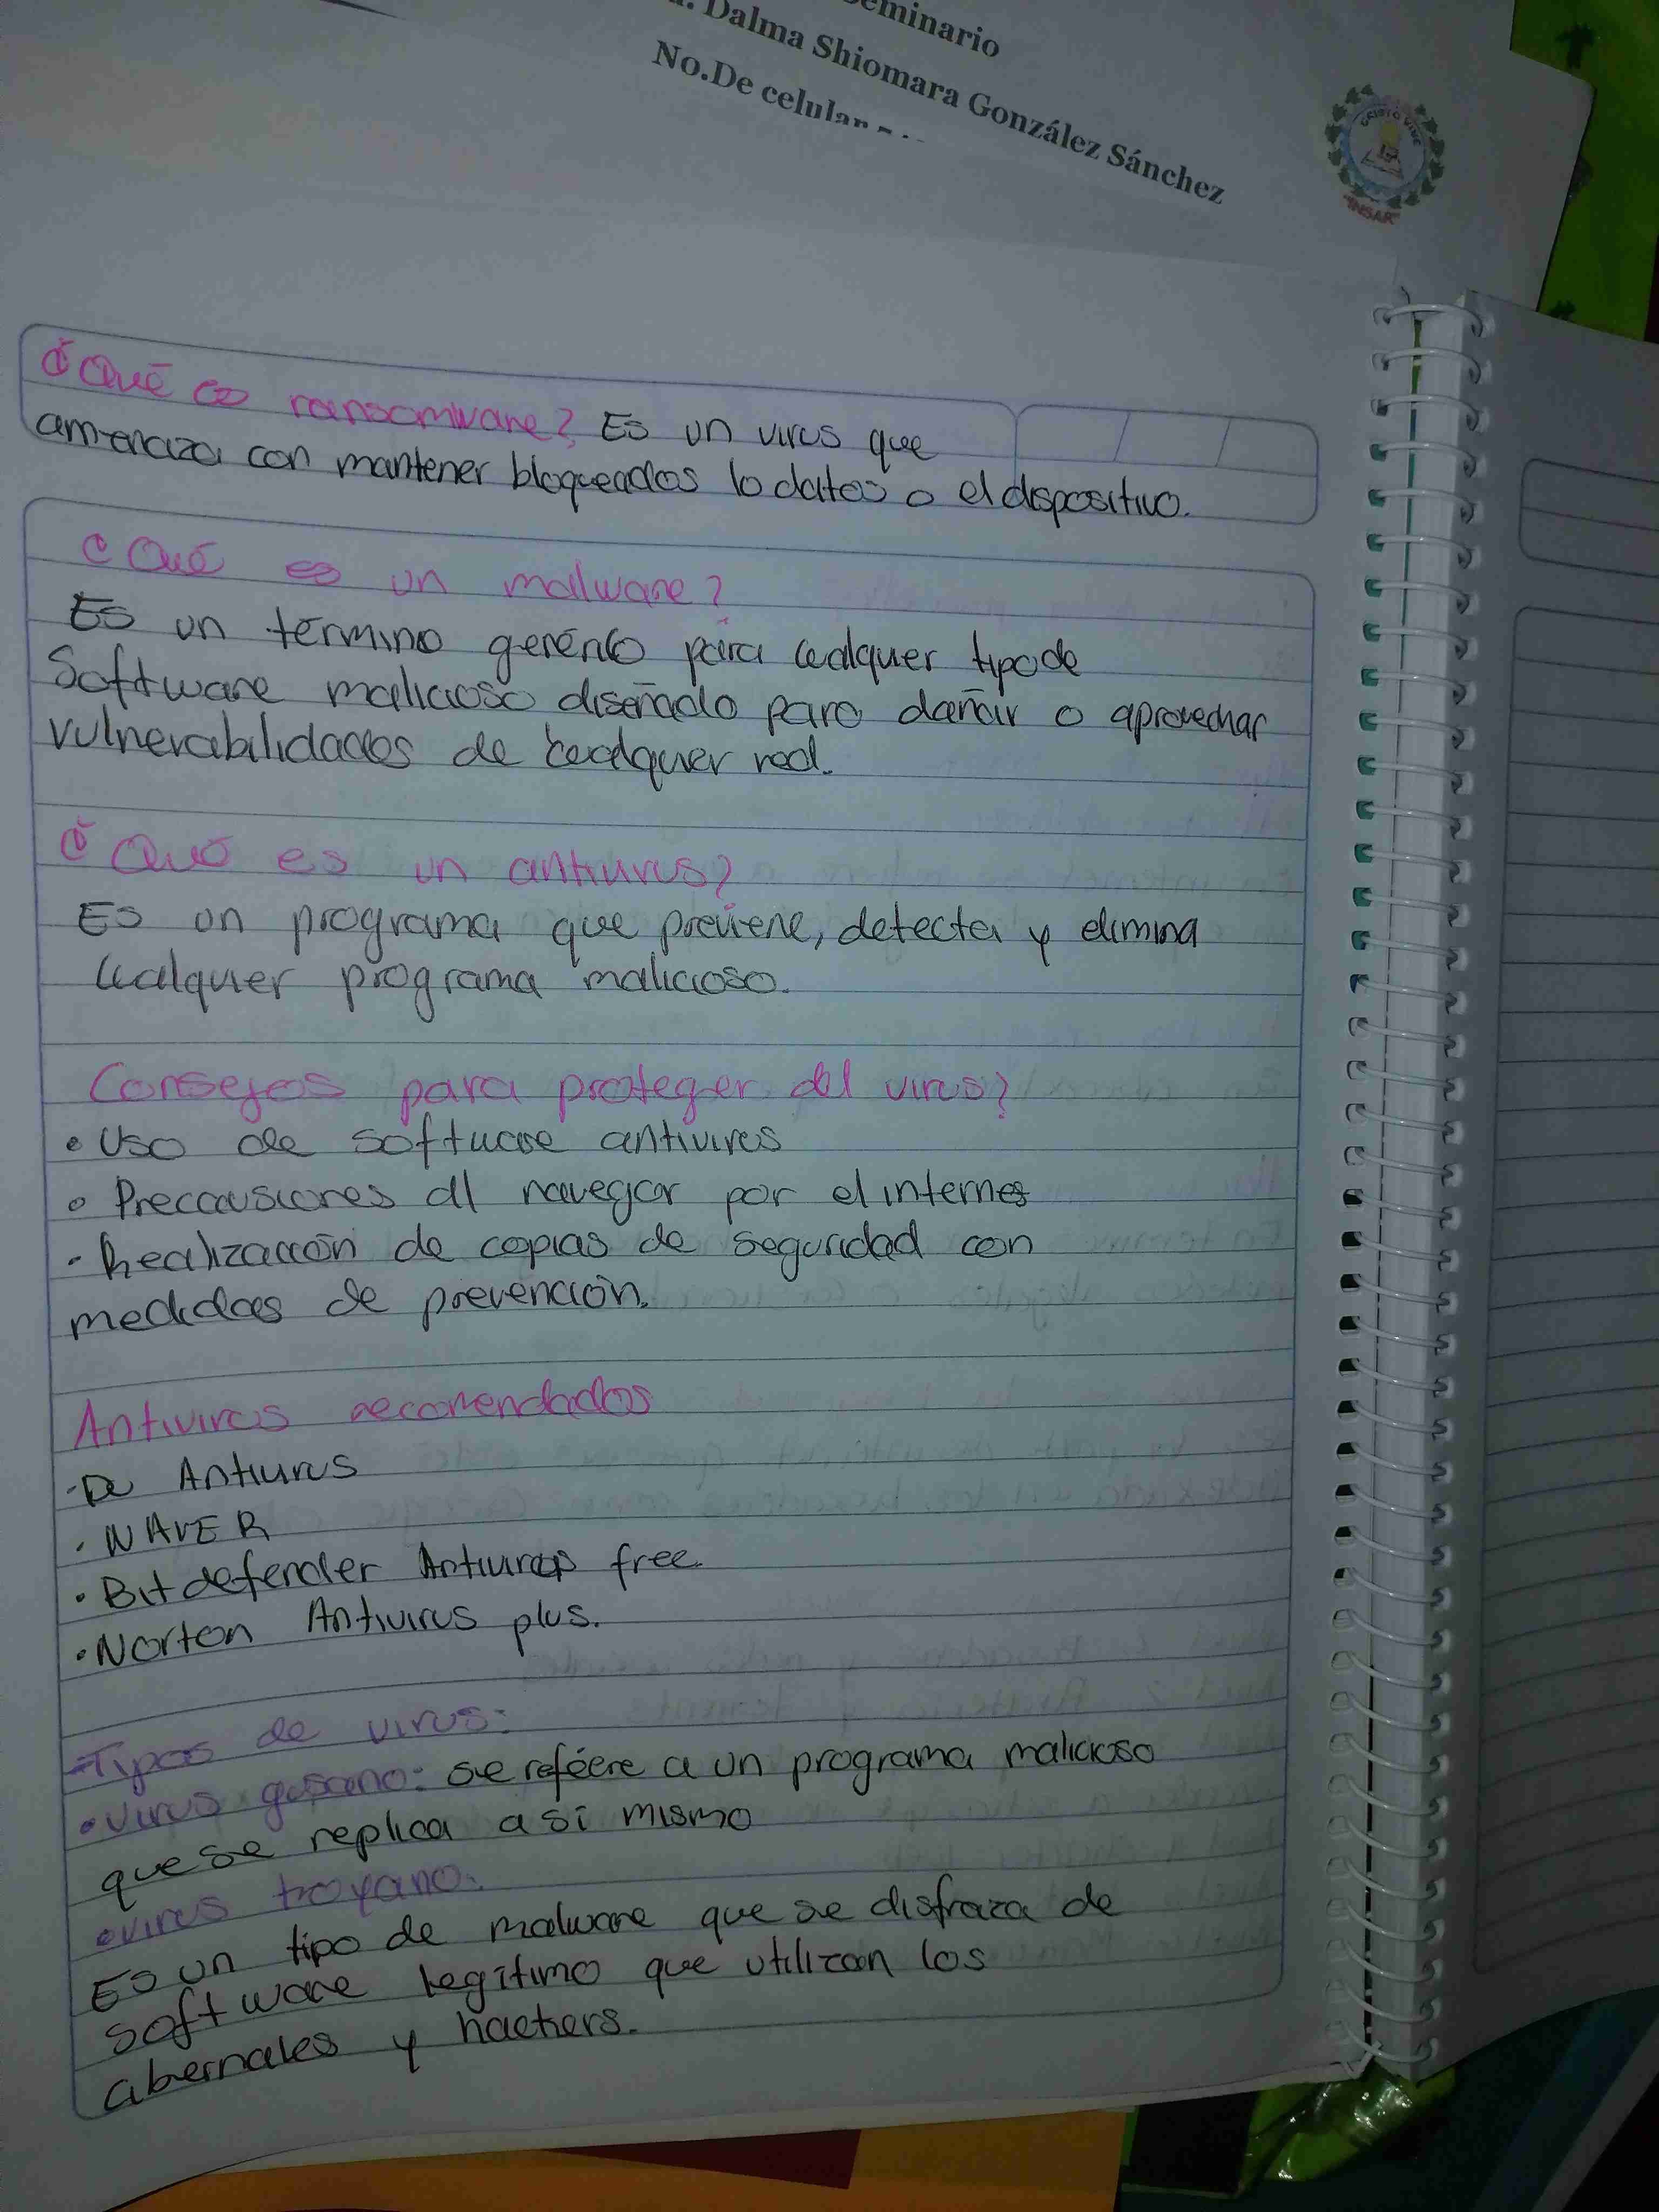 Seminario
Dalma Shiomara González Sánchez
No.De celular
CRISTO VIVE
"INSAR"
¿Qué es ransomware? Es un virus que
amenaza con mantener bloqueados lo datos o el dispositivo.
¿Qué es un malware?
Es un término genérico para cualquer tipo de
Software malicioso diseñado para dañar o aprovechar
vulnerabilidades de cualquer red.
¿Qué es un antivirus?
Es un programa que previene, detecta y elimina
cualquier programa malicioso.
Consejos para proteger del virus?
• Uso de software antivirus
• Preccausiones al navegar por el internes
• Realización de copias de seguridad con
medidas de prevención.
Antivirus recomendados
• Antivirus
• WAVER
• Bitdefender Antivirus free.
• Norton Antivirus plus.
Tipos de virus:
• Virus gusano: se refiere a un programa malicioso
que se replica a sí mismo
• virus troyano:
Es un tipo de malware que se disfraza de
software legítimo que utilizan los
y hackers.